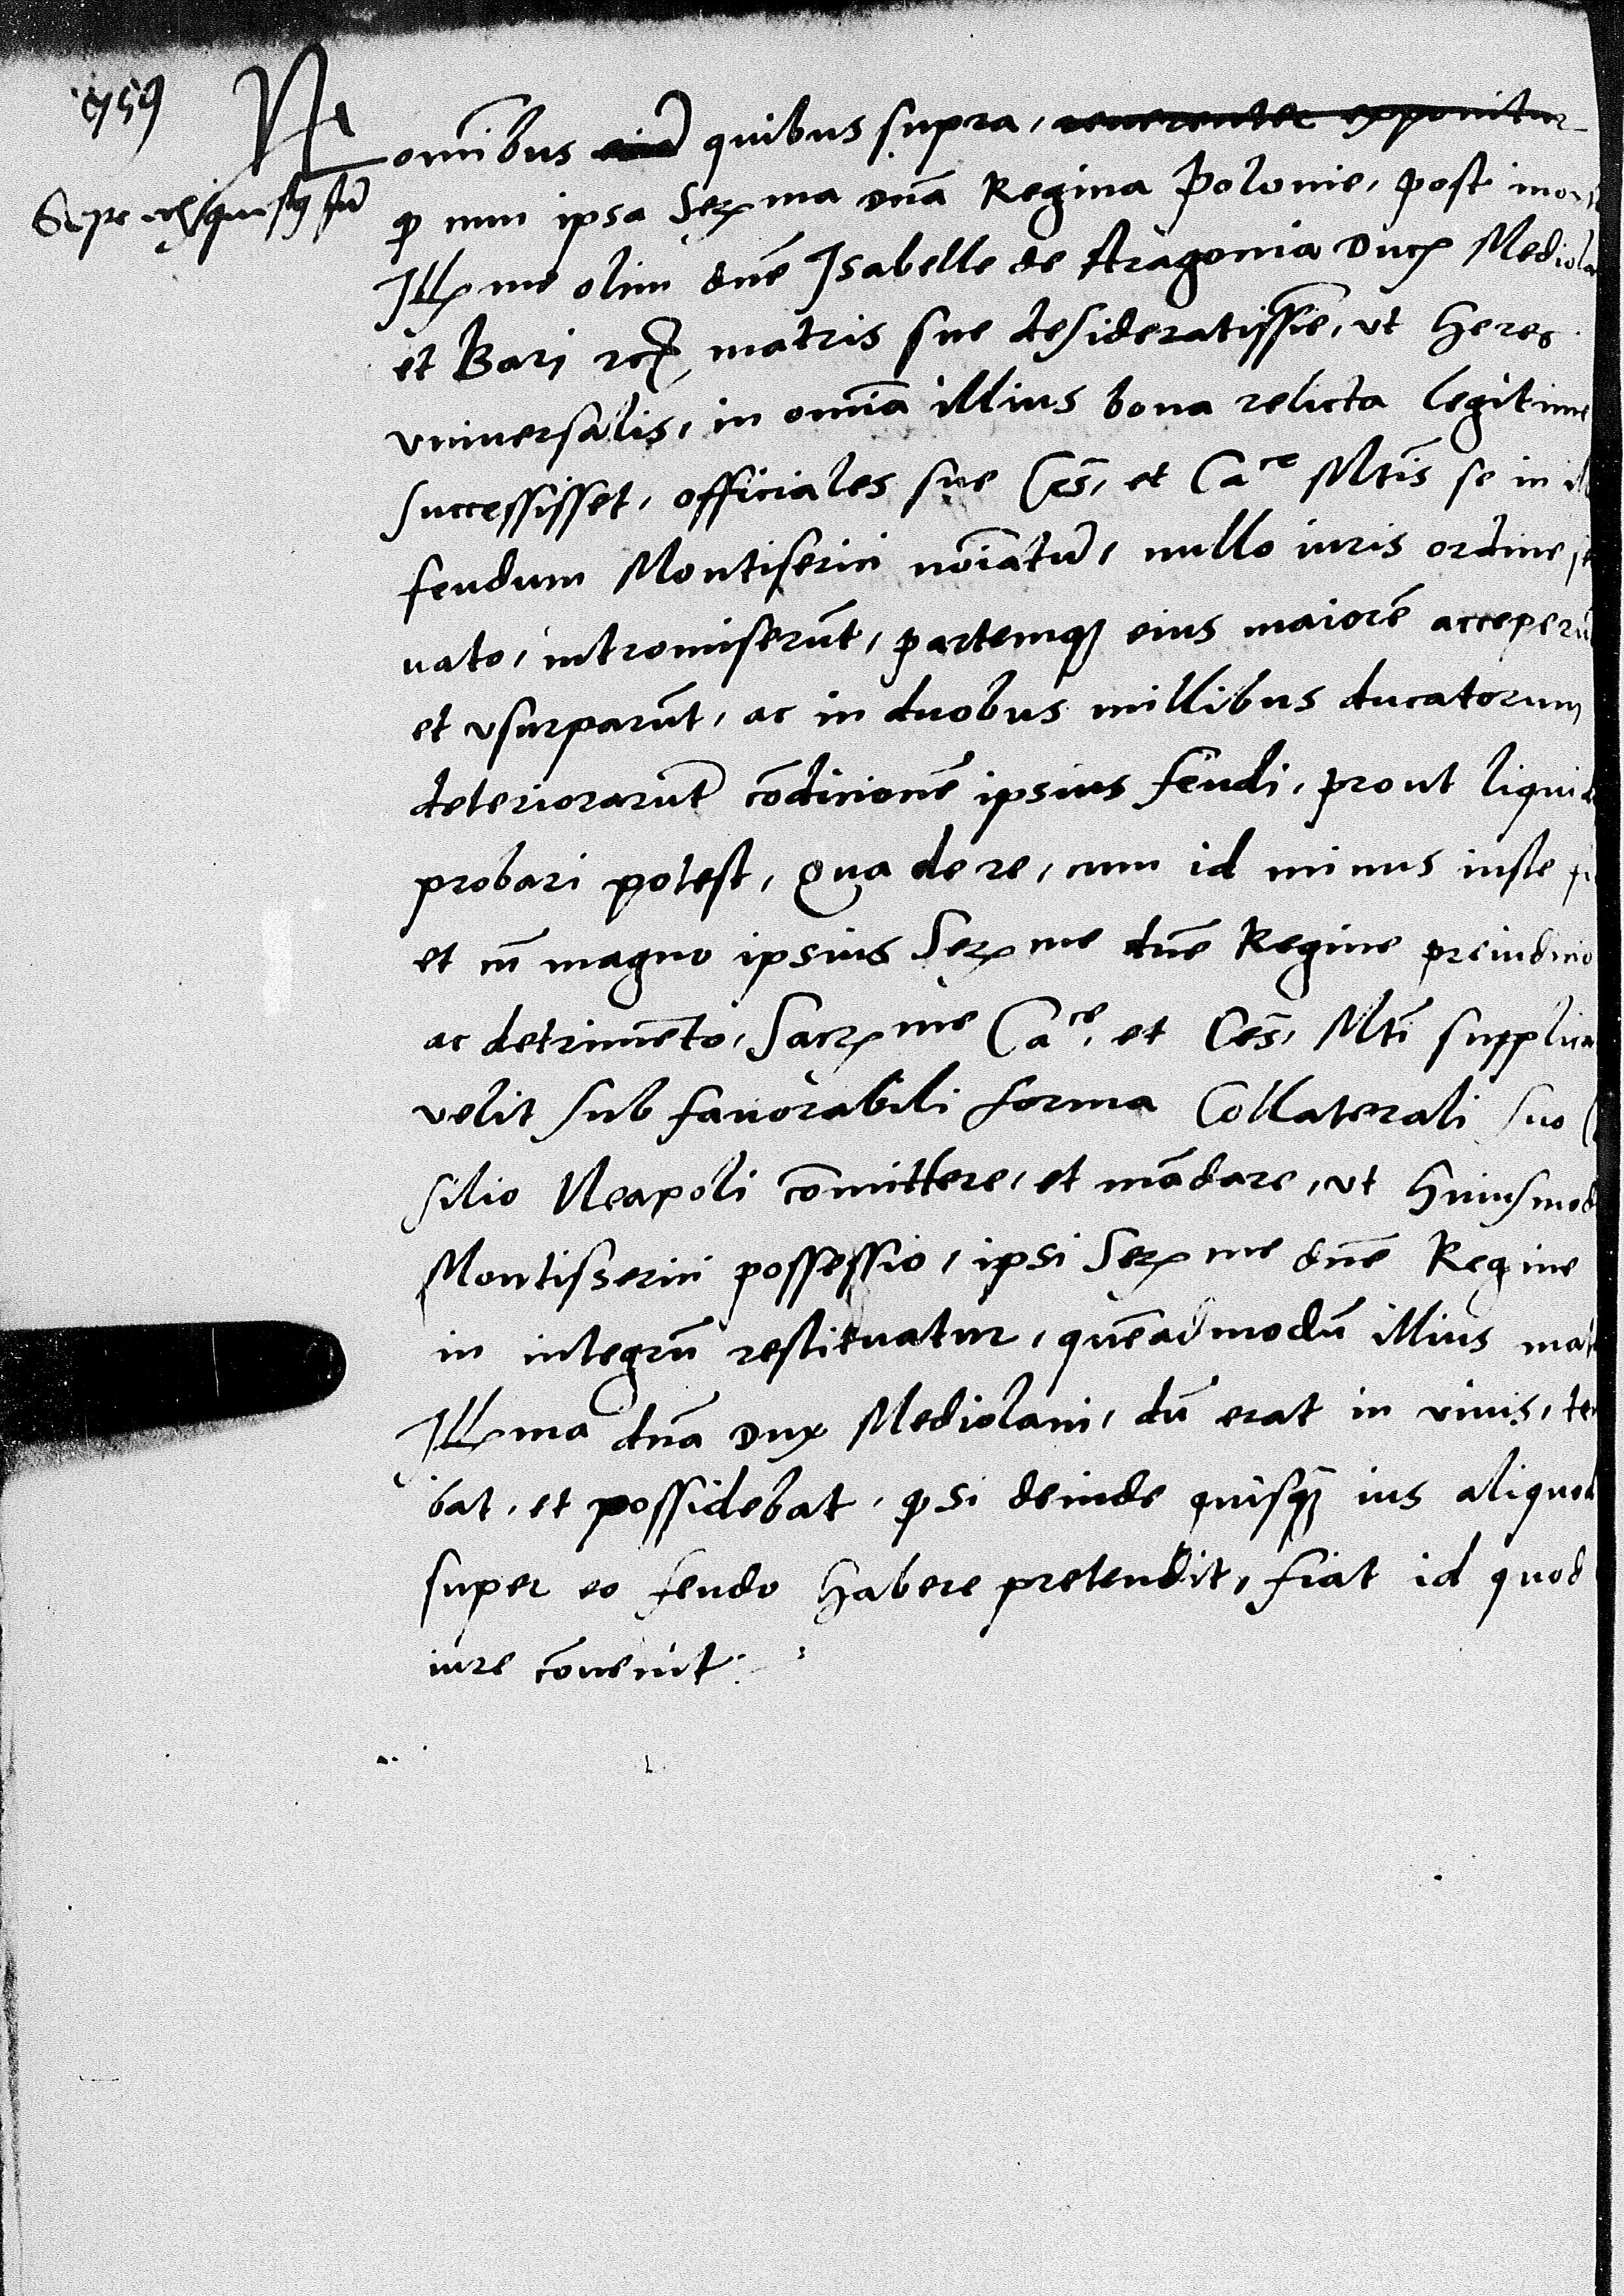 759
omnibus quibus supra, reverenter exponitur
qͦ cum ipsa Serma dna Regina Polonie, post mor
Illme olim dne Isabelle de Aragonia Duc Mediola
et Bari matris sue desideratissīe, ut heres
universalis, in omnia illius bona relicta legitime
successisset, officiales sue Ces, et Cace Mtis se in
feudum Montiserici noīatū, nullo iuris ordine
vato, intromiserūt, partemqꝫ eius maiorē acceperū
et vsurparūt, ac in duobus millibus ducatorum
deteriorarūt cōdicionē ipsius feudi, prout liquid
probari potest, Qua de re, cum id minus iuste
et cū magno ipsius Serme dne Regine preiudicio
ac detrimēto, Sacrme Cace, et Ces, Mti supplica
velit sub favorabili forma Collaterali suo
silio Neapoli cōmittere, et mādare, ut huiusmod
Montisserici possessio, ipsi Serme dne Regine
in integrū restituatur, quēadmodū illius mat
Illma dna Dux Mediolani, dū erat in vivis, te
bat, et possidebat, qͦ si deinde quisqꝫ ius aliquod
super eo feudo habere pretendit, fiat id quod
iure cōvenit.